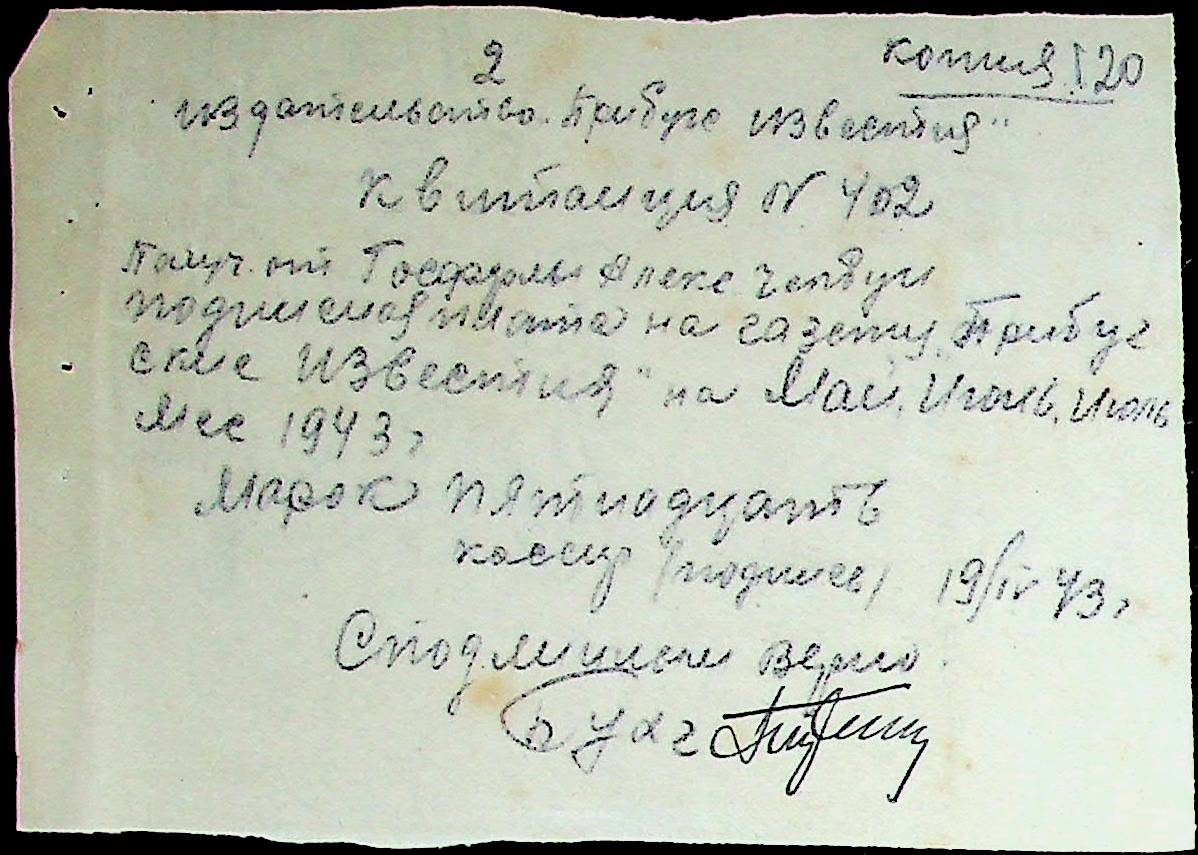 2
копия 120
издательство „Прибугс известия"
Квитанция N 402
Получ. от Госфермы Алекс
подписная плата на газету „Прибуг
ские Известия" на Май, Июнь, Июль
Мес 1943 г
Марок пятнодцать
кассир /подпись/ 19/IV 43 г
С подлинным верно
Бухг